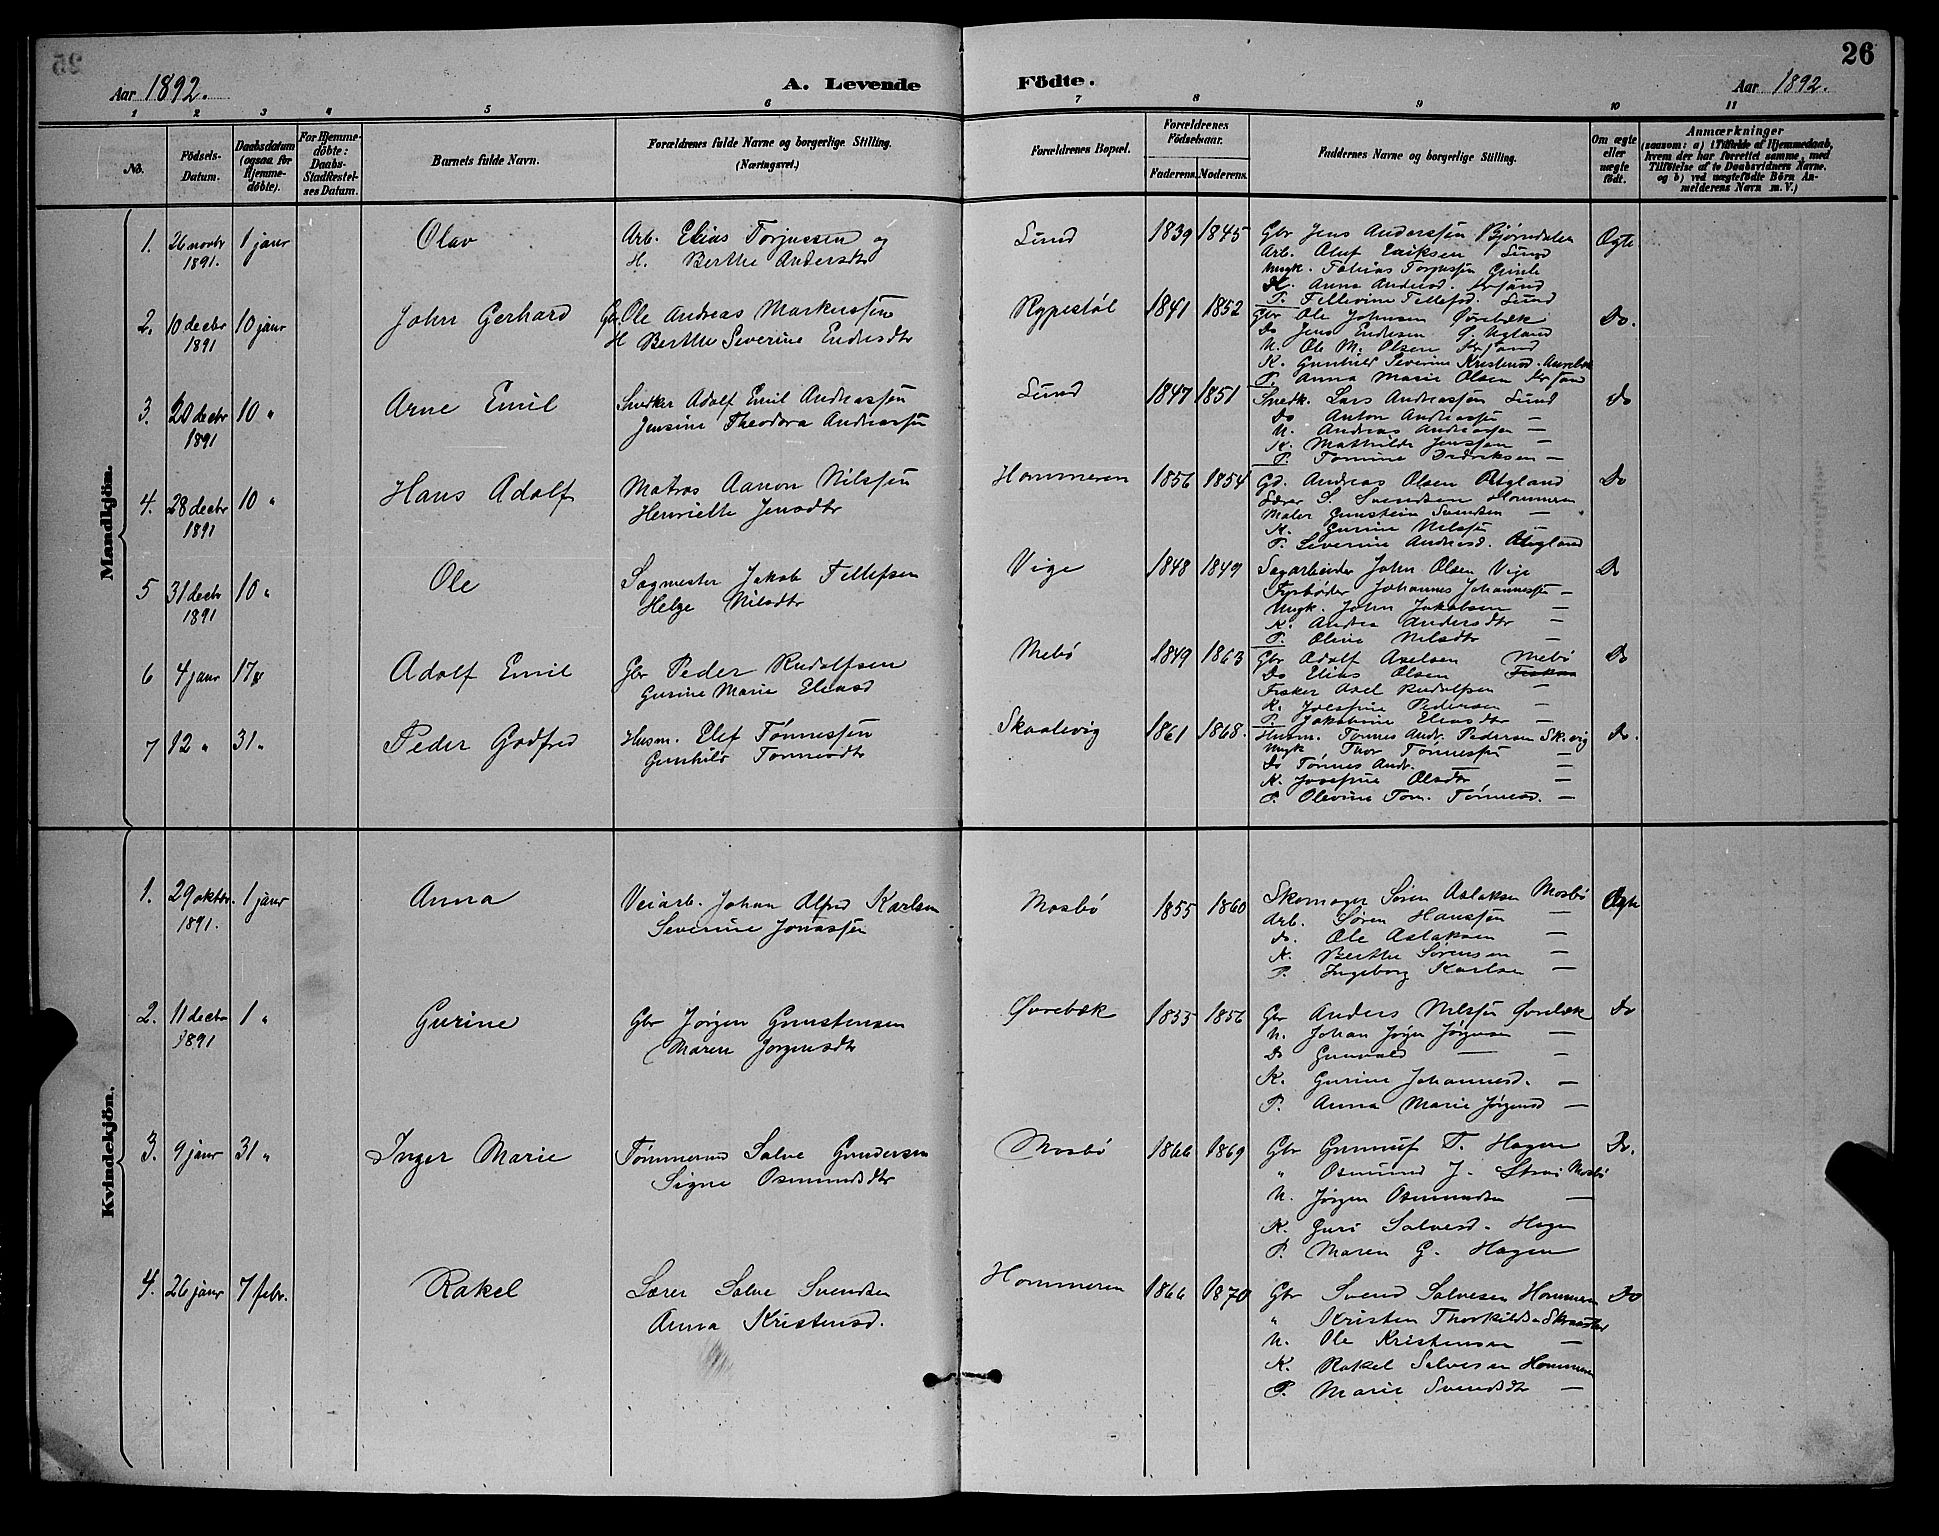 26
Aar 1892. A. Levende Födte. Aar 1892.
1 2 3 4 5 6 7 8 9 10 11
No. Födsels-Datum. Daabsdatum (ogsaa for Hjemme-döbte). For Hjemme-döbte: Daabs-Stadfæstel-ses Datum. Barnets fulde Navn. Forældrenes fulde Navne og borgerlige Stilling. (Næringsvei.) Forældrenes Bopæl. Forældrenes Födselsaar. Faderens. Moderens. Faddernes Navne og borgerlige Stilling. Om ægte eller uægte födt. Anmærkninger (saasom: a) i Tilfælde af Hjemmedaab, hvem der har forrettet samme, med Tilföielse af to Daabsvidners Navne, og b) ved uægtefödte Börn An-melderens Navn m. V.)
Mandkjön.
1. 26 novbr 1891. 1 janr Olav Arb. Elias Torjussen og
H. Berthe Andersdtr
Lund 1839 1845 Gbr Jens Anderssen Bjørndalen Ægte
Arb. Oluf Eriksen Lund
Ungk. Tobias Torjussen
H. Anna Andersd.
P. Tellevine Tellefsd. Lund
2. 10 decbr 1891 10 janr John Gerhard Gbr. Ole Andreas Markussen
H Berthe Severine Endresdtr
Rypestøl 1841 1852 Gbr Ole Johnsen Øvrebæk Do.
Do Jens Endresen
U. Ole M. Olsen
K. Gunhild Severine Kristensd.
P. Anna Marie Olsen
3. 20 decbr 1891 10 " Arne Emil Snedker Adolf Emil Andreassen
Jensine Theodora Andreassen
Lund 1847 1851 Snedk. Lars Andreassen Lund do
Do Anton Andreassen —
U. Andreas Andreassen —
K. Mathilde Jenssen —
P. Tomine Dedriksen —
4. 28 decbr 1891 10 " Hans Adolf Matros Aanon Nilssen
Henriette Jensdtr
Hommeren 1856 1854 Gd. Andreas Olsen Do
Lærer S. Svendsen Hommeren
Maler Gunstein Svendsen —
K. Gurine Nilssen —
P. Severine Andreasd.
5 31 decbr 1891 10 " Ole Sagmester Jakob Tellefsen
Helge Nilsdtr
Vige 1848 1849 Sagarbeider John Olsen Vige Do
Fyrbøder Johannes Johannessen —
Ungk. John Jakobsen —
K. Andrea Andersdtr —
P. Oline Nilsdtr —
6 4 janr 17 " Adolf Emil Gbr Peder Rudolfsen
Gurine Marie Eliasd
Mebø 1849 1863 Gbr Adolf Axelsen Mebø Do
Do Elias Olsen
Fisker Axel Rudolfsen —
K. Josefine Pedersen —
P. Jakobine Eliasdtr —
7 12 " 31 " Peder Godfred Husm. Elef Tønnessen
Gunhild Tønnesdtr
Skaalevig 1861 1868. Husm. Tønnes Andr. Pedersen Sk.vig Do.
Ungk Thor Tønnessen —
Do Tønnes Andr. —
K. Josefine Olsdtr —
P. Olevine Tom. Tønnesd. —
Kvindekjön.
1. 29 oktbr. 1891. 1 janr Anna Veiarb. Johan Alfred Karlsen
Severine Jonassen
Mosbø 1855 1860 Skomager Søren Aslaksen Mosbø Ægte
Arb. Søren Hanssen —
do. Ole Aslaksen —
K. Berthe Sørensen —
P. Ingeborg Karlsen —
2. 11 decbr 1891 1 " Gurine Gbr Jørgen Gunstensen
Maren Jørgensdtr
Øvrebæk 1855 1856 Gbr Anders Nilssen Øvrebæk Do
U. Johan Jørgen Jørgensen —
Do Gunvald — —
K. Gurine Johannesd. —
P. Anna Marie Jørgensd —
3. 9 janr 31 " Inger Marie Tømmermd Salve Gundersen
Signe Osmundsdtr
Mosbø 1866 1869 Gbr Gunnuf T. Hagen Do.
" Osmund J. Strai Mosbø
U. Jørgen Osmundsen —
K. Guri Salvesd. Hagen
P. Maren G. Hagen
4. 26 janr 7 febr. Rakel Lærer Salve Svendsen
Anna Kristensd.
Hommeren 1866 1870 Gbr Svend Salvesen Hommeren Do
" Kristen Thorkildsen
U. Ole Kristensen —
K. Rakel Salvesen Hommeren
P. Marie Svendsdtr —